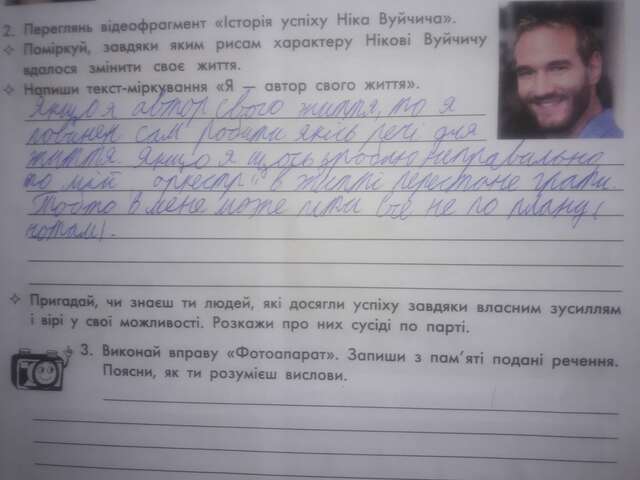 2. Переглянь відеофрагмент «Історія успіху Ніка Вуйчича».
✧ Поміркуй, завдяки яким рисам характеру Нікові Вуйчичу
вдалося змінити своє життя.
✧ Напиши текст-міркування «Я — автор свого життя».
Якщо я автор свого життя, то я
повинен сам робити якісь речі для
життя. Якщо я щось зроблю неправильно
то мій "оркестр" в житті перестане грати.
Тобто в мене може піти все не по плану(
нотам).
✧ Пригадай, чи знаєш ти людей, які досягли успіху завдяки власним зусиллям
і вірі у свої можливості. Розкажи про них сусіді по парті.
3. Виконай вправу «Фотоапарат». Запиши з пам’яті подані речення.
Поясни, як ти розумієш вислови.